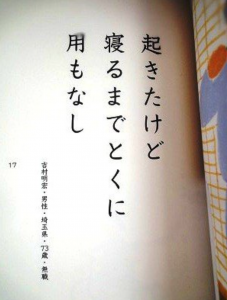 起きたけど
寝るまでとくに
用もなし
吉村明宏・男性・埼玉県・73歳・無職
17